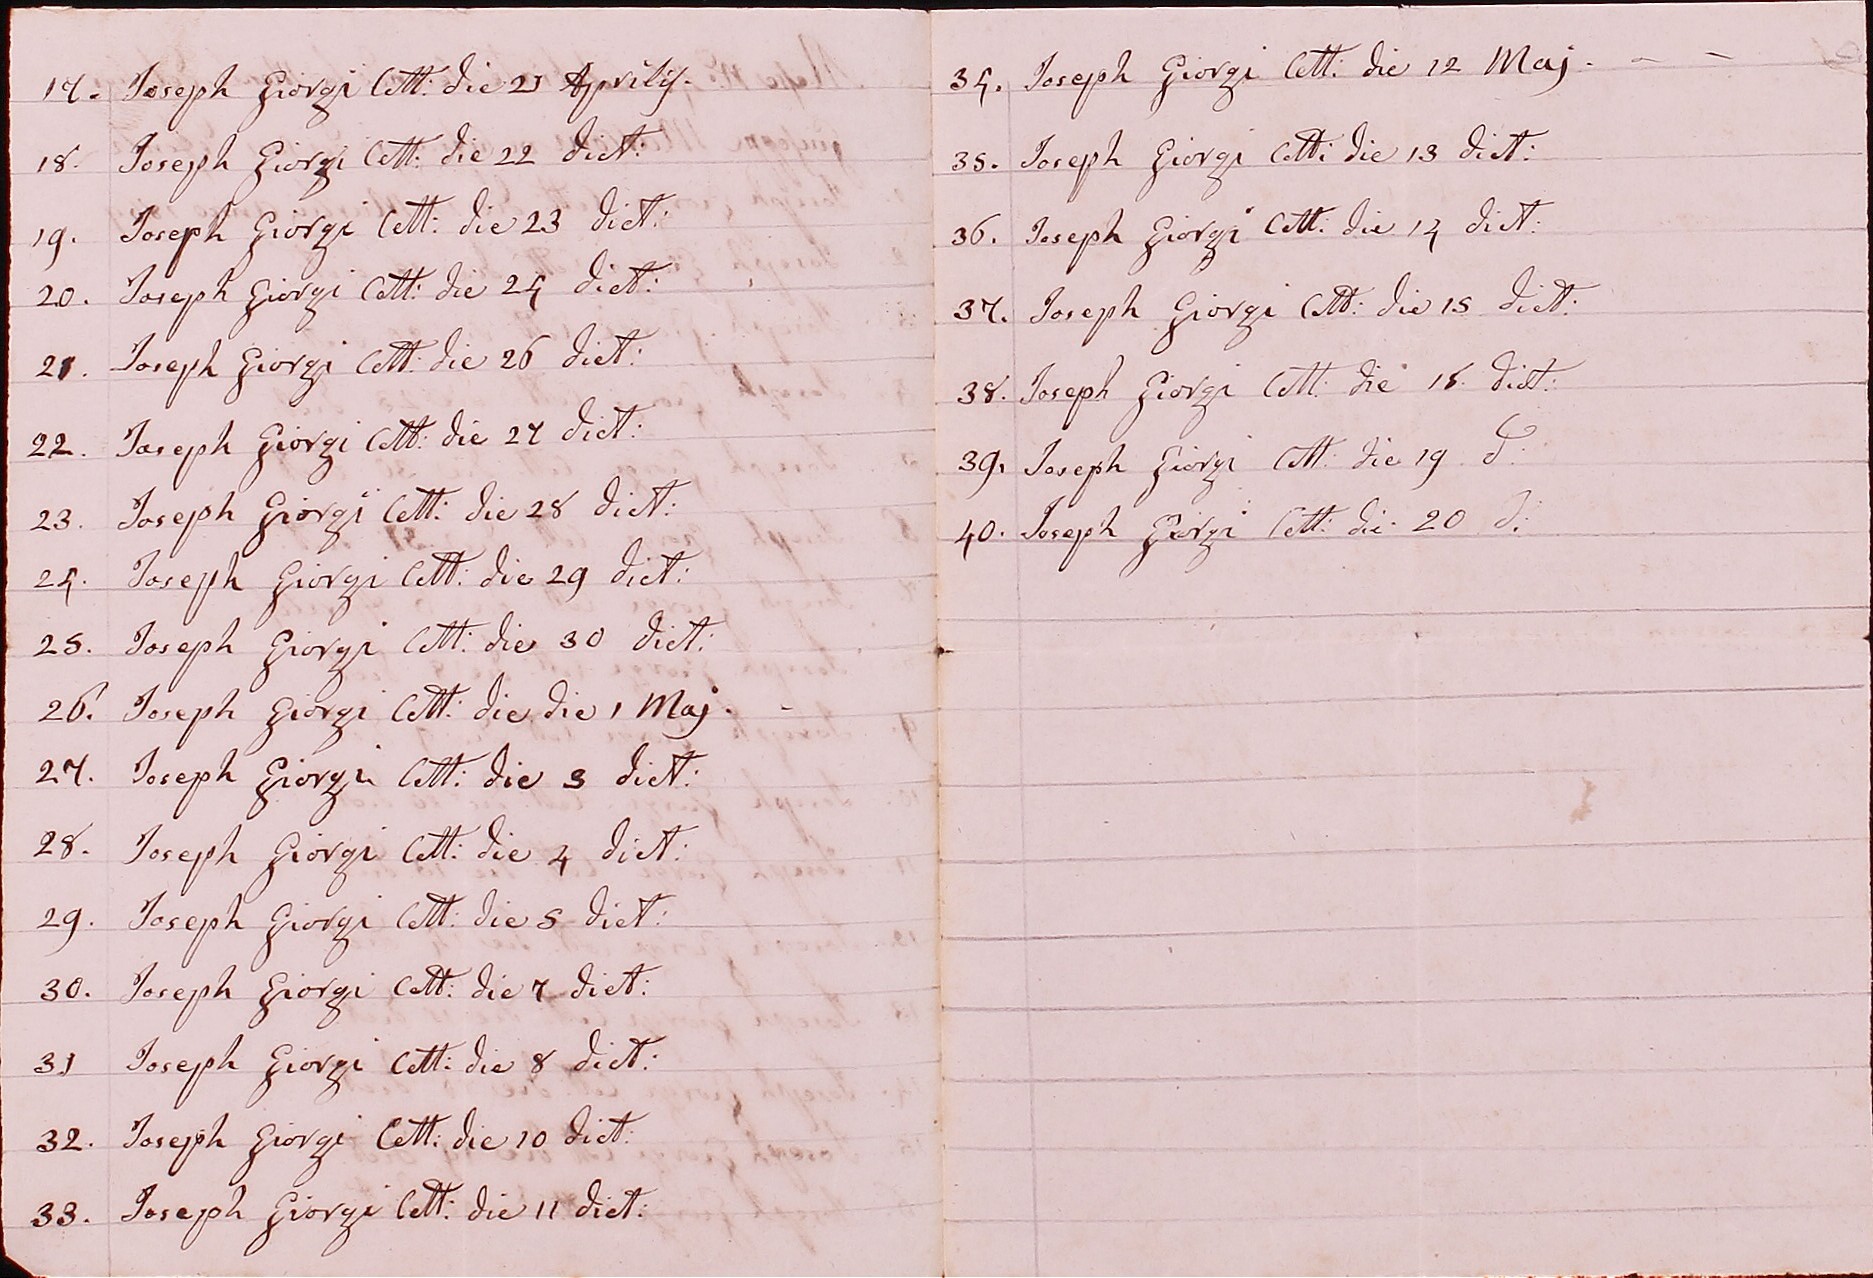 17. Joseph Giorgi Cett: die 21 Aprilij.
18. Joseph Giorgi Cett: die 22 dict:
19. Joseph Giorgi Cett: die 23 dict:
20. Joseph Giorgi Cett: die 24 dict:
21. Joseph Giorgi Cett: die 26 dict:
22. Joseph Giorgi Cett: die 27 dict:
23. Joseph Giorgi Cett: die 28 dict:
24. Joseph Giorgi Cett: die 29 dict:
25. Joseph Giorgi Cett: die 30 dict:
26. Joseph Giorgi Cett: die die 1 Maj. -
27. Joseph Giorgi Cett: die 3 dict:
28. Joseph Giorgi Cett: die 4 dict:
29. Joseph Giorgi Cett: die 5 dict:
30. Joseph Giorgi Cett: die 7 dict:
31 Joseph Giorgi Cett: die 8 dict:
32. Joseph Giorgi Cett: die 10 dict:
33. Joseph Giorgi Cett: die 11 dict:
34. Joseph Giorgi Cett: die 12 Maj. - -
35. Joseph Giorgi Cett: die 13 dict:
36. Joseph Giorgi Cett: die 14 dict:
37. Joseph Giorgi Cett: die 15 dict:
38. Joseph Giorgi Cett: die dict:
39. Joseph Giorgi Cett: die 19 d:
40. Joseph Giorgi Cett: die 20 d: